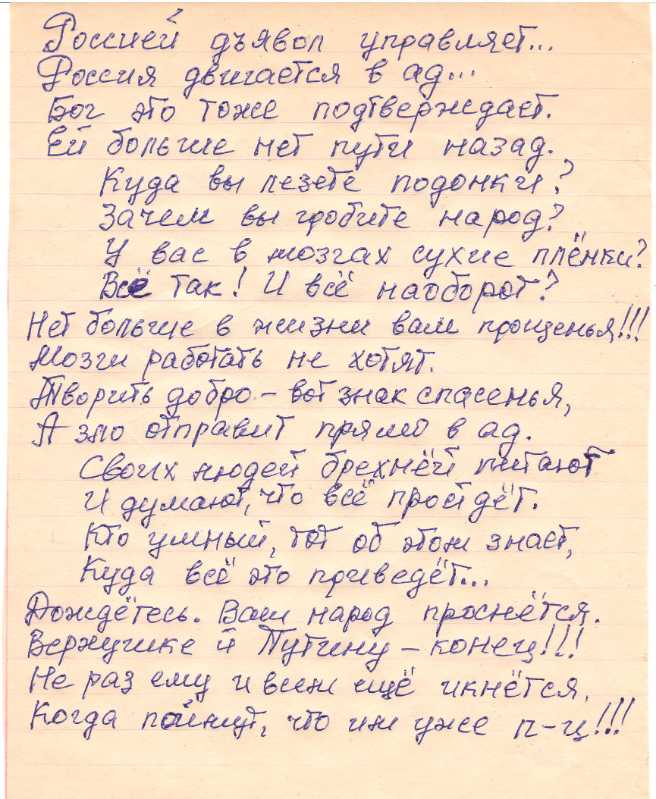 Россией дъявол управляет...
Россия двигается в ад...
Бог это тоже подтверждает.
Ей больше нет пути назад.
Куда вы лезете подонки?
Зачем вы гробите народ?
У вас в мозгах сухие плёнки?
Всё так! И всё наоборот?
Нет больше в жизни вам прощенья!!!
Мозги работать не хотят.
Творить добро - вот знак спасенья,
А зло отправит прямо в ад.
Своих людей брехнёй питают
И думают, что всё пройдёт.
Кто умный, тот об этом знает,
Куда всё это приведёт...
Дождётесь. Ваш народ проснётся.
Верхушке и Путину - конец!!!
Не раз ему и всем ещё икнётся,
Когда поймут, что им уже п-ц!!!